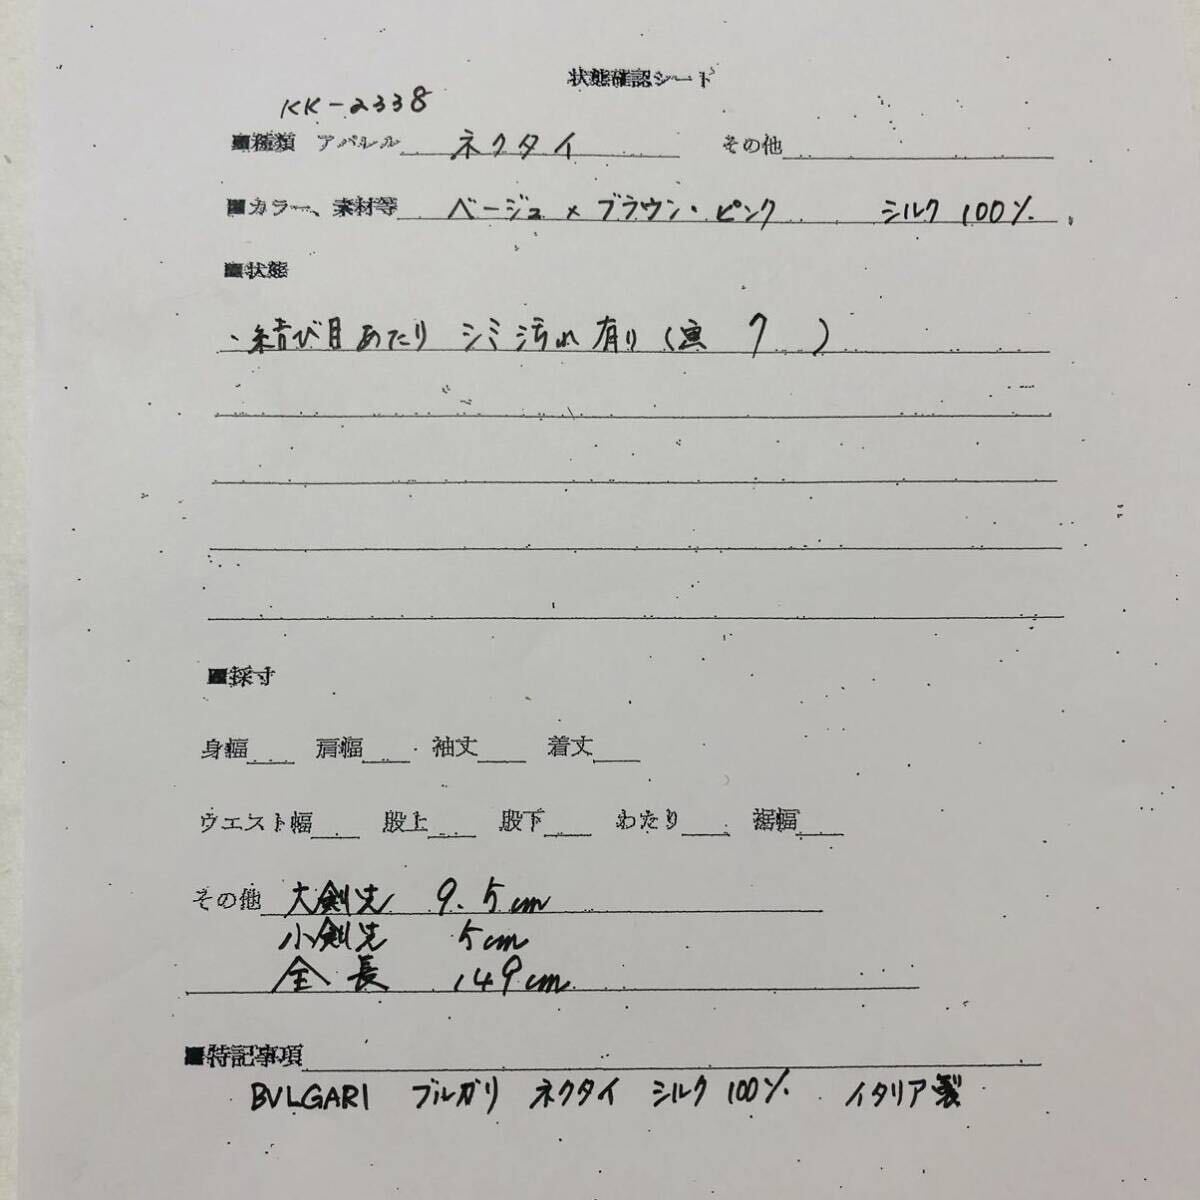 状態確認シート
KK-2338
■種類 アパレル ネクタイ その他
■カラー、素材等 ベージュ×ブラウン・ピンク シルク100%
■状態
・結び目あたり シミ汚れ有り(画 7 )
■採寸
身幅 肩幅 袖丈 着丈
ウエスト幅 股上 股下 わたり 裾幅
その他 大剣先 9.5cm
小剣先 5cm
全長 149cm
■特記事項
BVLGARI ブルガリ ネクタイ シルク100% イタリア製